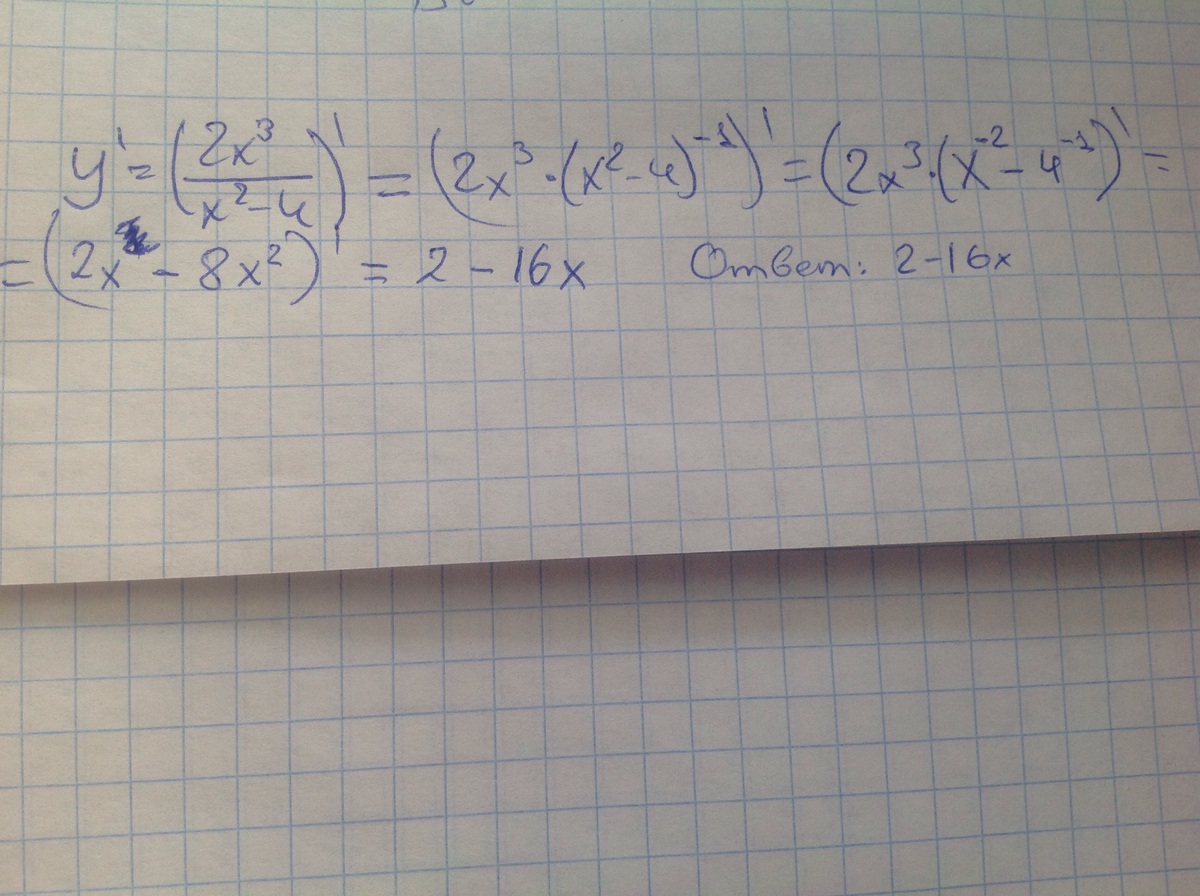 y' = (2x³/(x²-4))' = (2x³·(x²-4)⁻¹)' = (2x³·(x⁻²-4⁻¹))' =
= (2x - 8x²)' = 2 - 16x Ответ: 2-16x